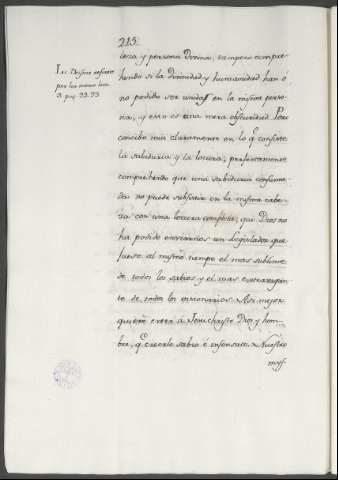 215
leza y persona Divina; tampoco compre-
hendo si la Divinidad y humanidad han ó
no podido ser unidas en la misma perso-
na, y esto es una mera obscuridad. Pero
concibo mui claramente en lo q̃ consiste
la sabiduria y la locura; perfectamente
comprehendo que una sabiduria consuma-
da no puede subsistir en la misma cabe-
za con una locura completa; que Dios no
ha podido enviarnos un Legislador que
fuese al mismo tiempo el mas sublime
de todos los sabios y el mas extravagan-
te de todos los visionarios. Asi mejor
quiero creer á Jesu christo Dios y hom-
bre, q̃ creerle sabio é insensato. Nuestro
mys.
Le Deisme refuté
par lui meme
p. pag. 92. 93